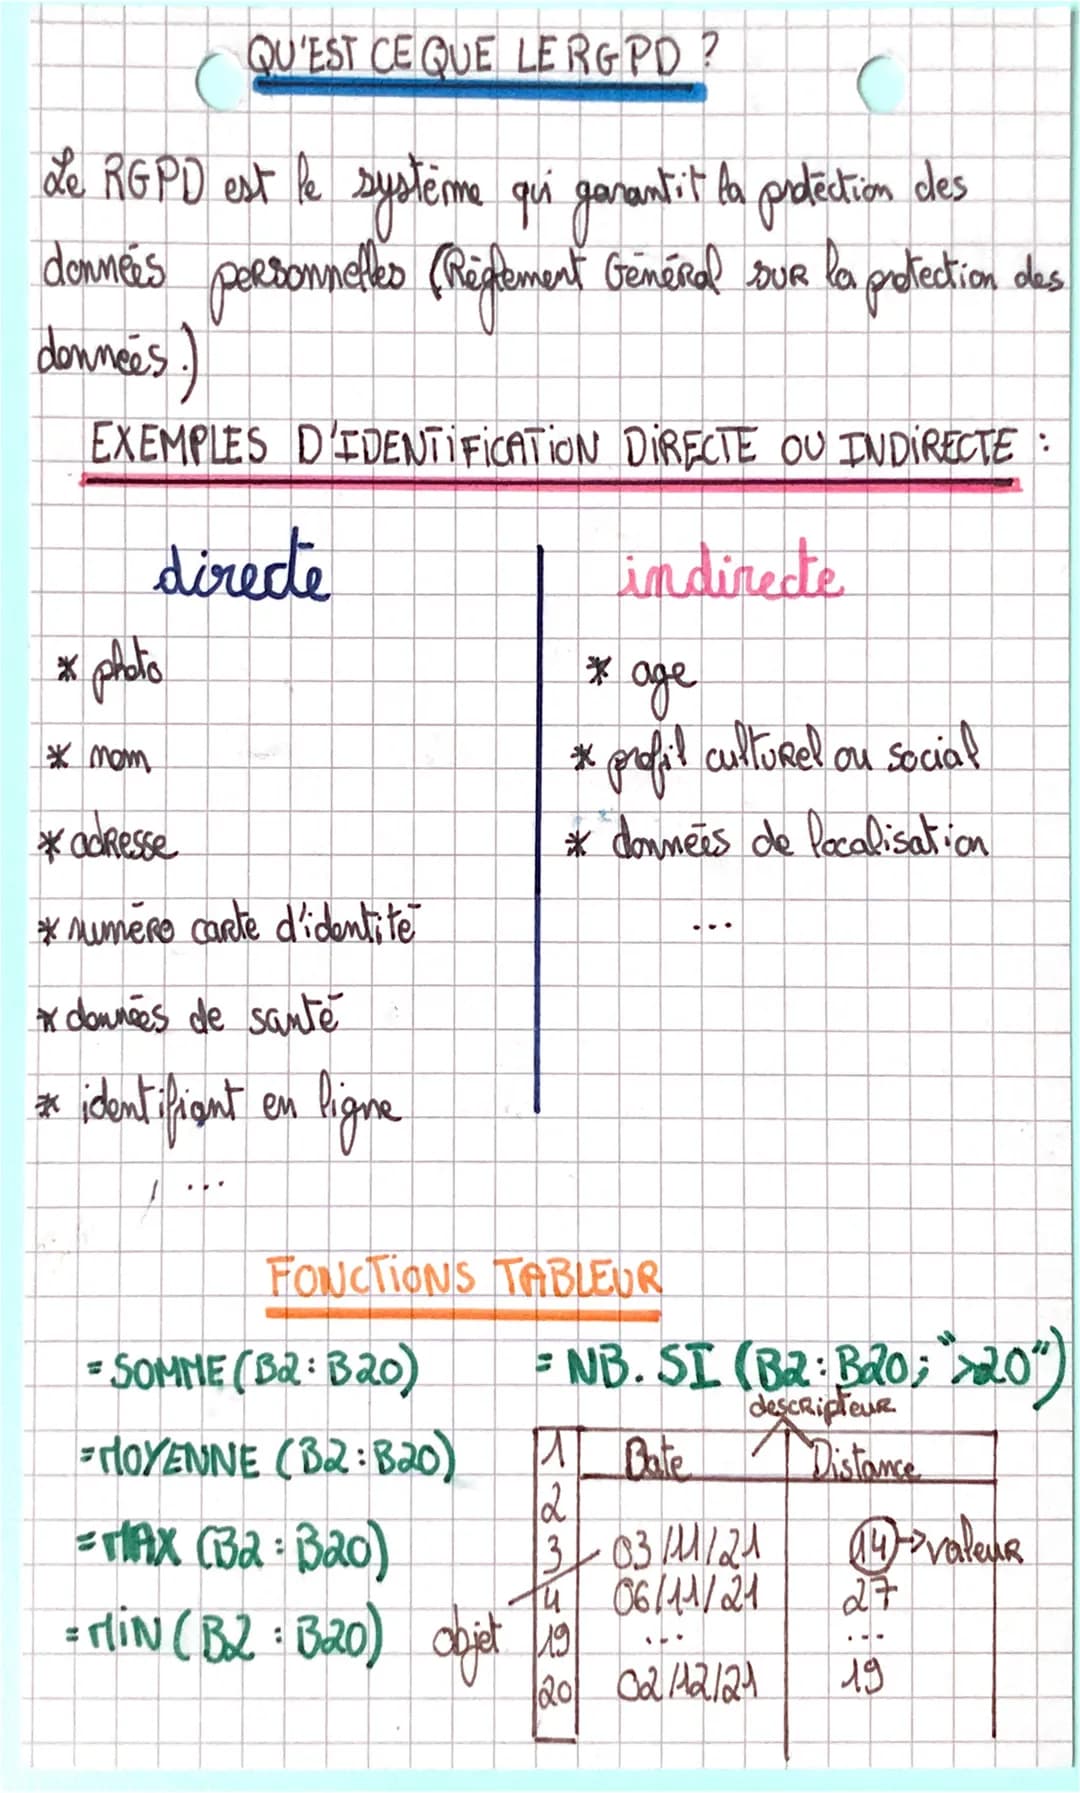 QU'EST CE QUE LE RGPD ?
Le RGPD est le système qui garantit la protection des
données personnelles (Règlement Général sur la protection des
données.)
EXEMPLES D'IDENTIFICATION DIRECTE OU INDIRECTE :
directe
* photo
* nom
* adresse
* numéro carte d'identité
* données de santé
* identifiant en ligne
...
indirecte
* age
* profil culturel ou social
* données de localisation
...
FONCTIONS TABLEUR
= SOMME (B2 : B20)
= MOYENNE (B2 : B20)
= MAX (B2 : B20)
= MIN ( B2 : B20)
= NB. SI (B2 : B20 ; ">20")
descripteur
1 Date Distance
2
3 03/11/21 14 → valeur
4 06/11/21 27
objet 19 ... ...
20 02/12/21 19